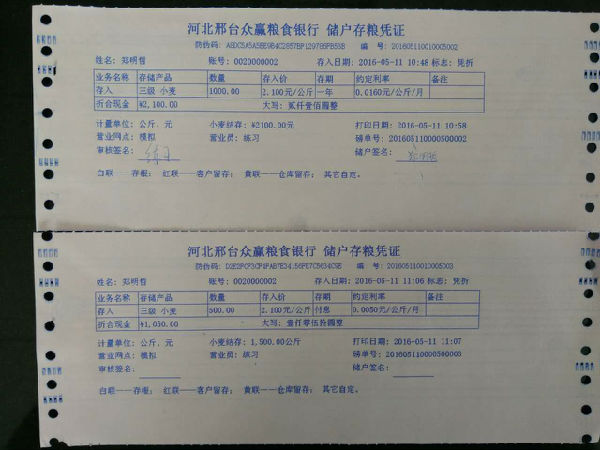 河北邢台众赢粮食银行 储户存粮凭证
防伪码: 编 号: 201605110010005002
姓名: 郑明哲 账号: 0020000002 存入日期: 2016-05-11 10:48 标志: 凭折
业务名称 存储产品 数量 存入价 存期 约定利率 备注
存入 三级 小麦 1000.00 2.100元/公斤 一年 0.0160元/公斤/月
折合现金 ¥2,100.00 大写: 贰仟壹佰圆整
计量单位: 公斤、元 小麦结存: ¥2100.00元 打印日期: 2016-05-11 10:58
营业网点: 模拟 营业员: 练习 磅单号: 201605110000500002
审核签名: 练习 储户签名:
白联——存根; 红联——客户留存; 黄联——仓库留存; 其它自定。
河北邢台众赢粮食银行 储户存粮凭证
防伪码: 编 号: 201605110010005003
姓名: 郑明哲 账号: 0020000002 存入日期: 2016-05-11 11:06 标志: 凭折
业务名称 存储产品 数量 存入价 存期 约定利率 备注
存入 三级 小麦 500.00 2.100元/公斤 付息 0.0050元/公斤/月
折合现金 ¥1,050.00 大写: 壹仟零伍拾圆整
计量单位: 公斤、元 小麦结存: 1,500.00公斤 打印日期: 2016-05-11 11:07
营业网点: 模拟 营业员: 练习 磅单号: 201605110000500003
审核签名: 储户签名:
白联——存根; 红联——客户留存; 黄联——仓库留存; 其它自定。